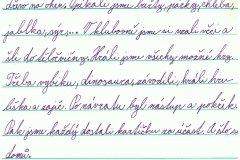 dřevo na oheň. Opékali jsme buřty, párky, chleba,
jablka, sýr,... V klubovně jsme si vzali věci a
šli do tělocvičny. Hráli jsme všechny možné hry.
Třeba vybiku, dinosaura, závodili, hráli hru
liška a zajíc. Po návratu byl nástup a pokřik.
Pak jsme každý dostali kartičku za účast. A šlo se
domů.